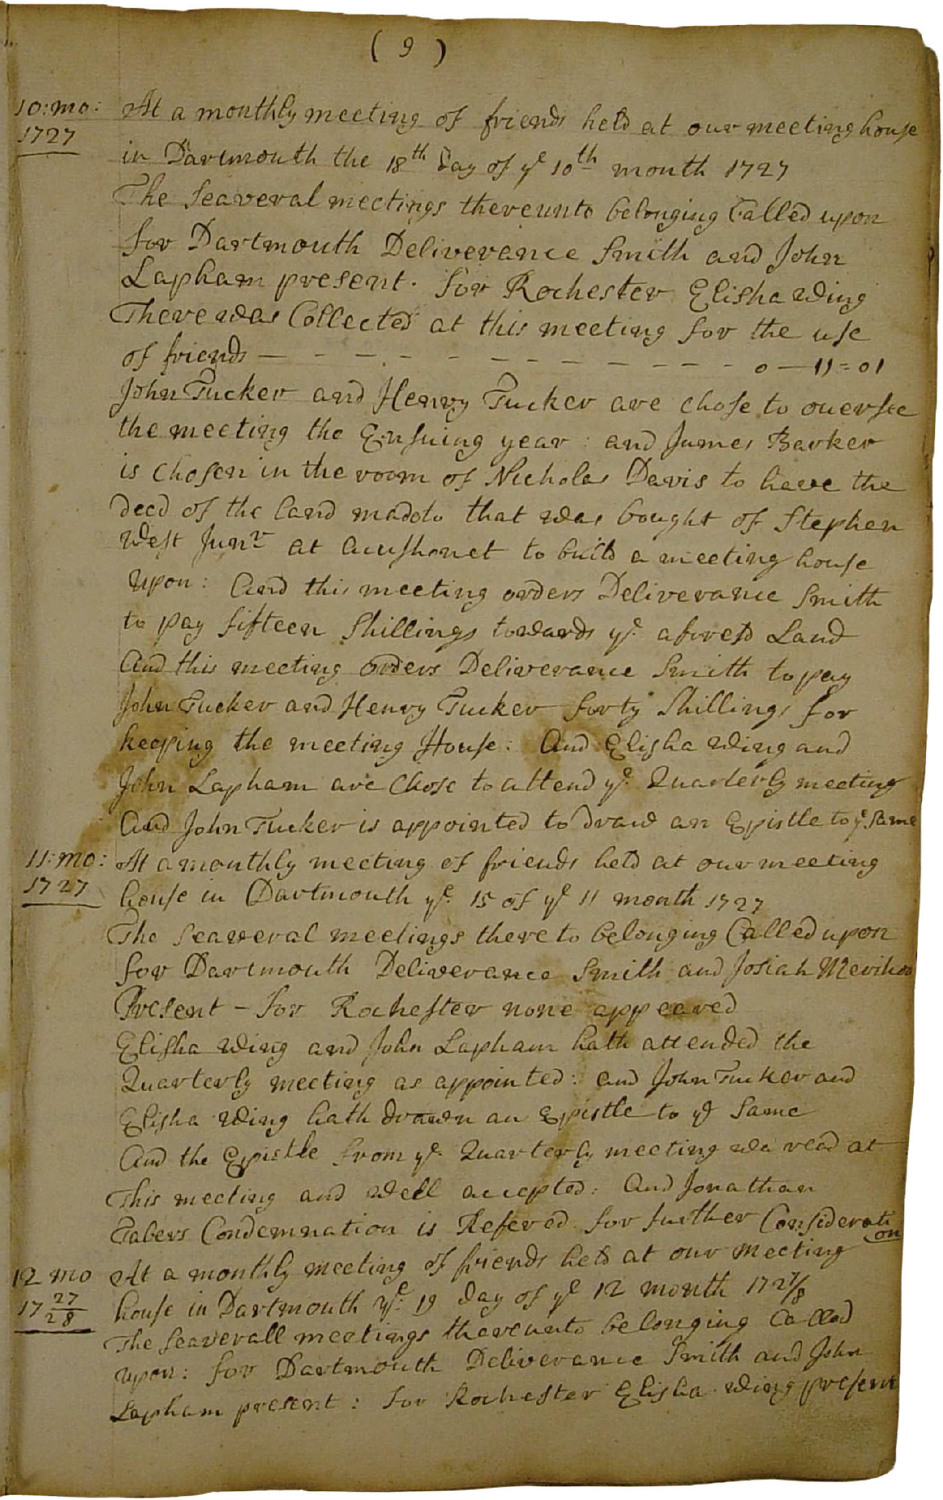 ( 9 )
10: mo: At a monthly meeting of friends held at our meeting house
1727 in Dartmouth the 18th Day of ye 10th month 1727
The Seaveral meetings thereunto belonging Called upon
for Dartmouth Deliverance Smith and John
Lapham present. for Rochester Elisha Wing
There was Collected at this meeting for the use
of friends — - - - - - - - - - - 0 — 11 = 01
John Tucker and Henry Tucker are chose to oversee
the meeting the Ensuing year: and James Barker
is chosen in the room of Nicholas Davis to have the
deed of the land that was bought of Stephen
West Junr at acushonet to build a meeting house
upon: And this meeting orders Deliverance Smith
to pay fifteen Shillings towards ye aforesd Land
And this meeting orders Deliverance Smith to pay
John Tucker and Henry Tucker forty Shillings for
keeping the meeting House: And Elisha Wing and
John Lapham are Chose to attend ye Quarterly meeting
And John Tucker is appointed to draw an Epistle to ye Same
11: mo: At a monthly meeting of friends held at our meeting
1727 house in Dartmouth ye 15 of ye 11 month 1727
The Seaveral meetings there to belonging Called upon
for Dartmouth Deliverance Smith and Josiah
Present - for Rochester none appeared
Elisha Wing and John Lapham hath attended the
Quarterly meeting as appointed: and John Tucker and
Elisha Wing hath drawn an Epistle to ye Same
And the Epistle from ye Quarterly meeting wa read at
This meeting and well accepted: And Jonathan
Tabers Condemnation is Refered for further Consideration
12 mo At a monthly meeting of friends held at our meeting
17 27/28 house in Dartmouth ye: 19 day of ye 12 month 1727/8
The Seaverall meetings thereunto belonging Called
upon: for Dartmouth Deliverance Smith and John
Lapham present: for Rochester Elisha Wing present